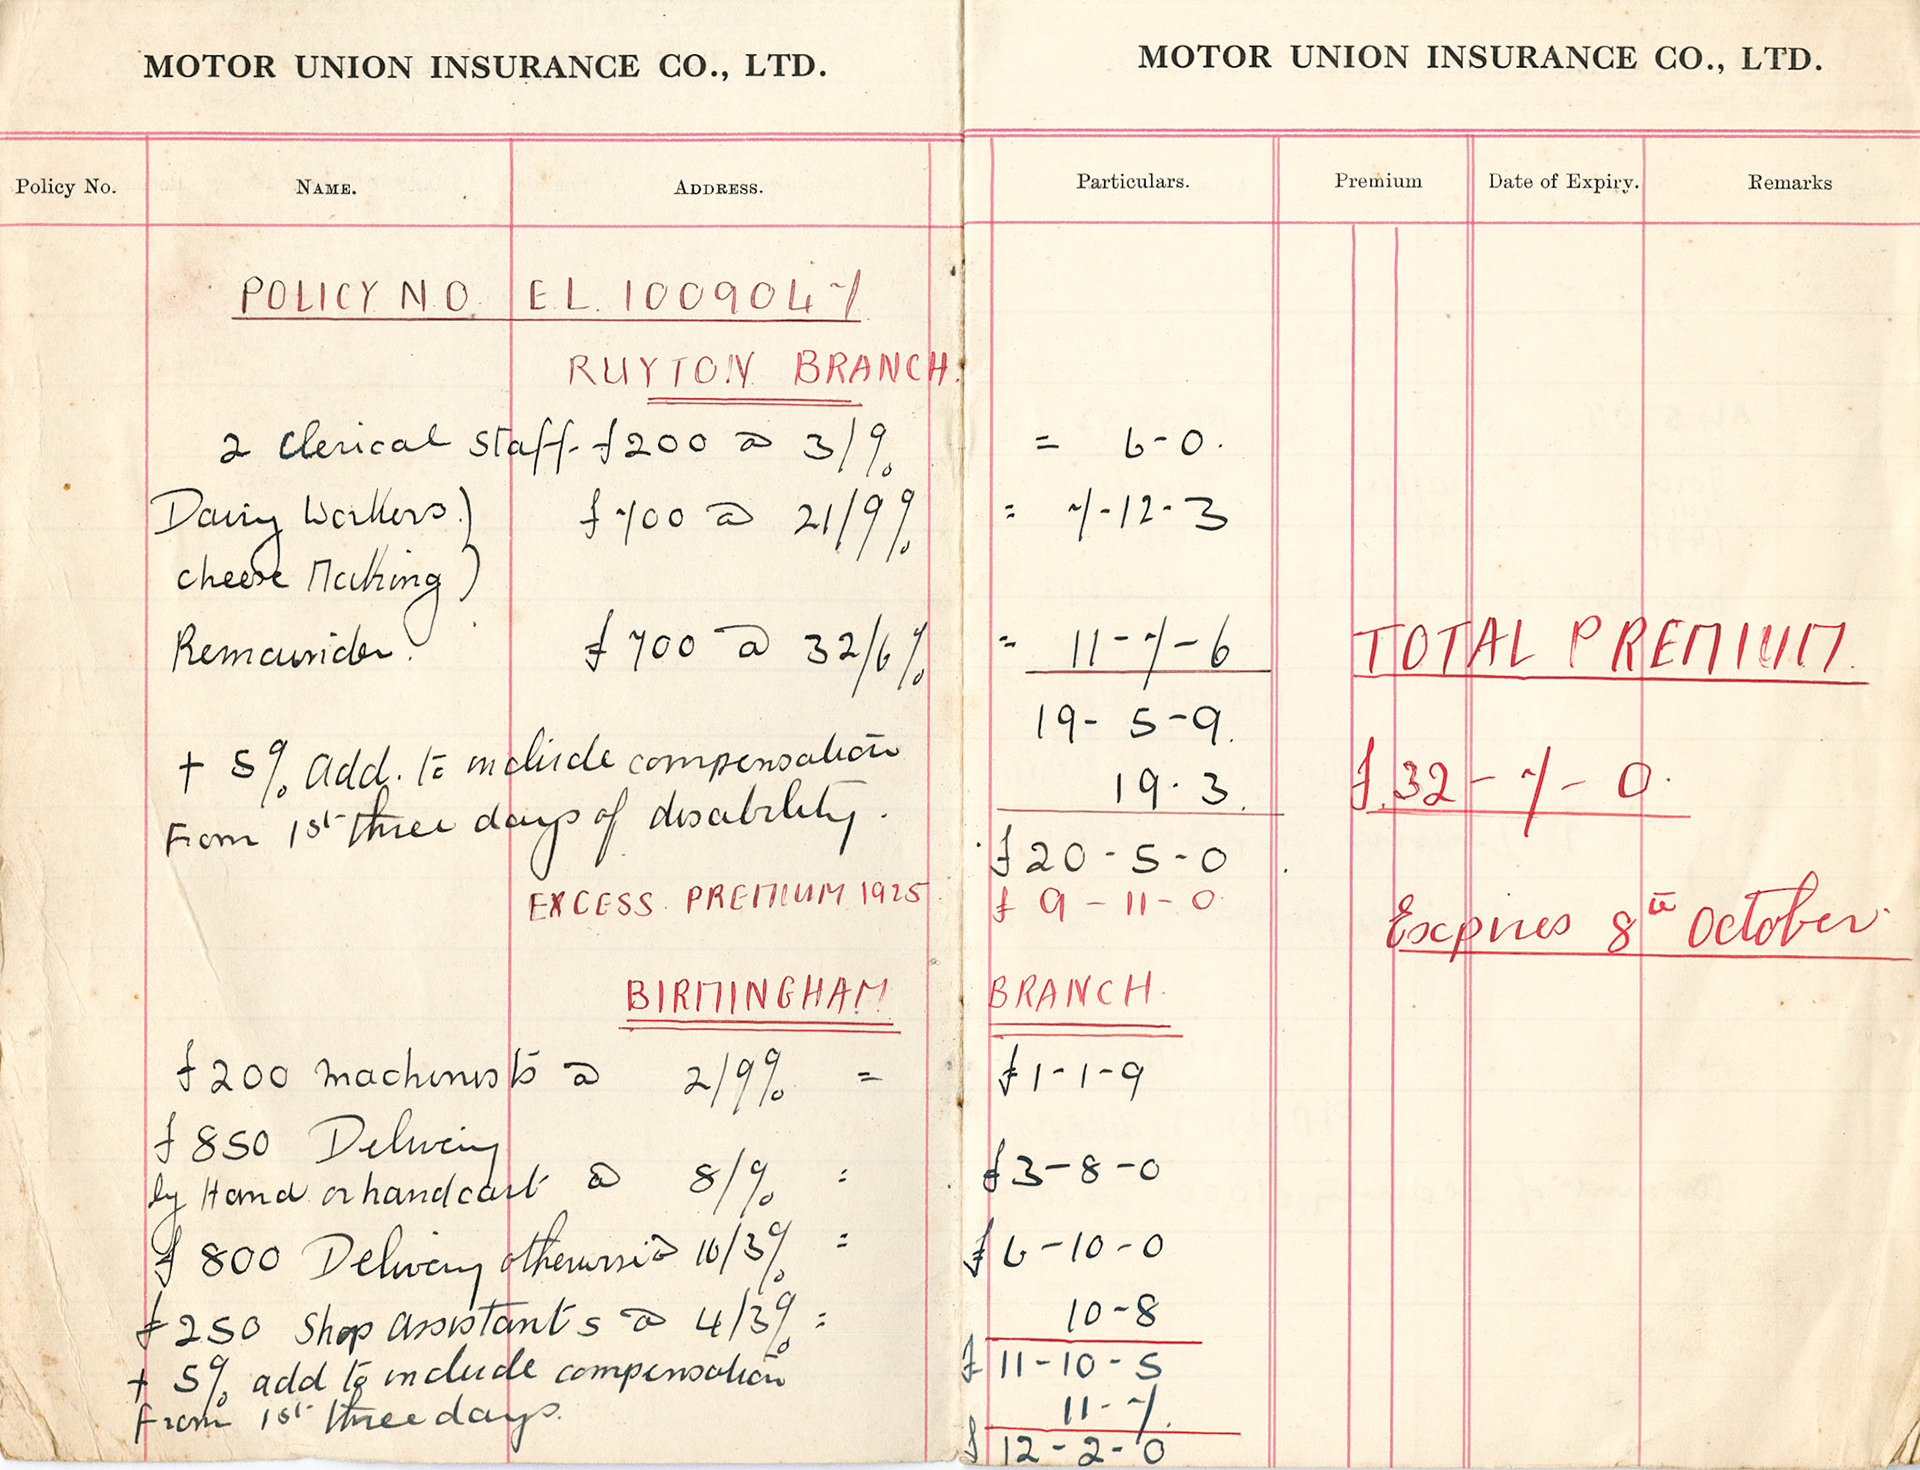 MOTOR UNION INSURANCE CO., LTD. MOTOR UNION INSURANCE CO., LTD.
Policy No. NAME. ADDRESS. Particulars. Premium Date of Expiry. Remarks
POLICY NO. E.L. 1009047
RUYTON BRANCH.
2 Clerical Staff - £200 @ 3/% = 6-0.
Dairy Workers.) £700 @ 21/9% = 7-12-3
cheese Making)
Remainder. £700 @ 32/6% = 11-7-6 TOTAL PREMIUM.
19-5-9.
+ 5% add. to include compensation
19.3. £32-7-0.
From 1st three days of disability.
£20-5-0
EXCESS. PREMIUM 1925. £9-11-0
Expires 8th October.
BIRMINGHAM BRANCH.
£200 machinists @ 2/9% = £1-1-9
£850 Delivery
by Hand or handcart @ 8/% = £3-8-0
£800 Delivery otherwise 16/3% = £6-10-0
£250 Shop assistants @ 4/3% = 10-8
£11-10-5
+ 5% add to include compensation
11-7.
From 1st three days.
£12-2-0